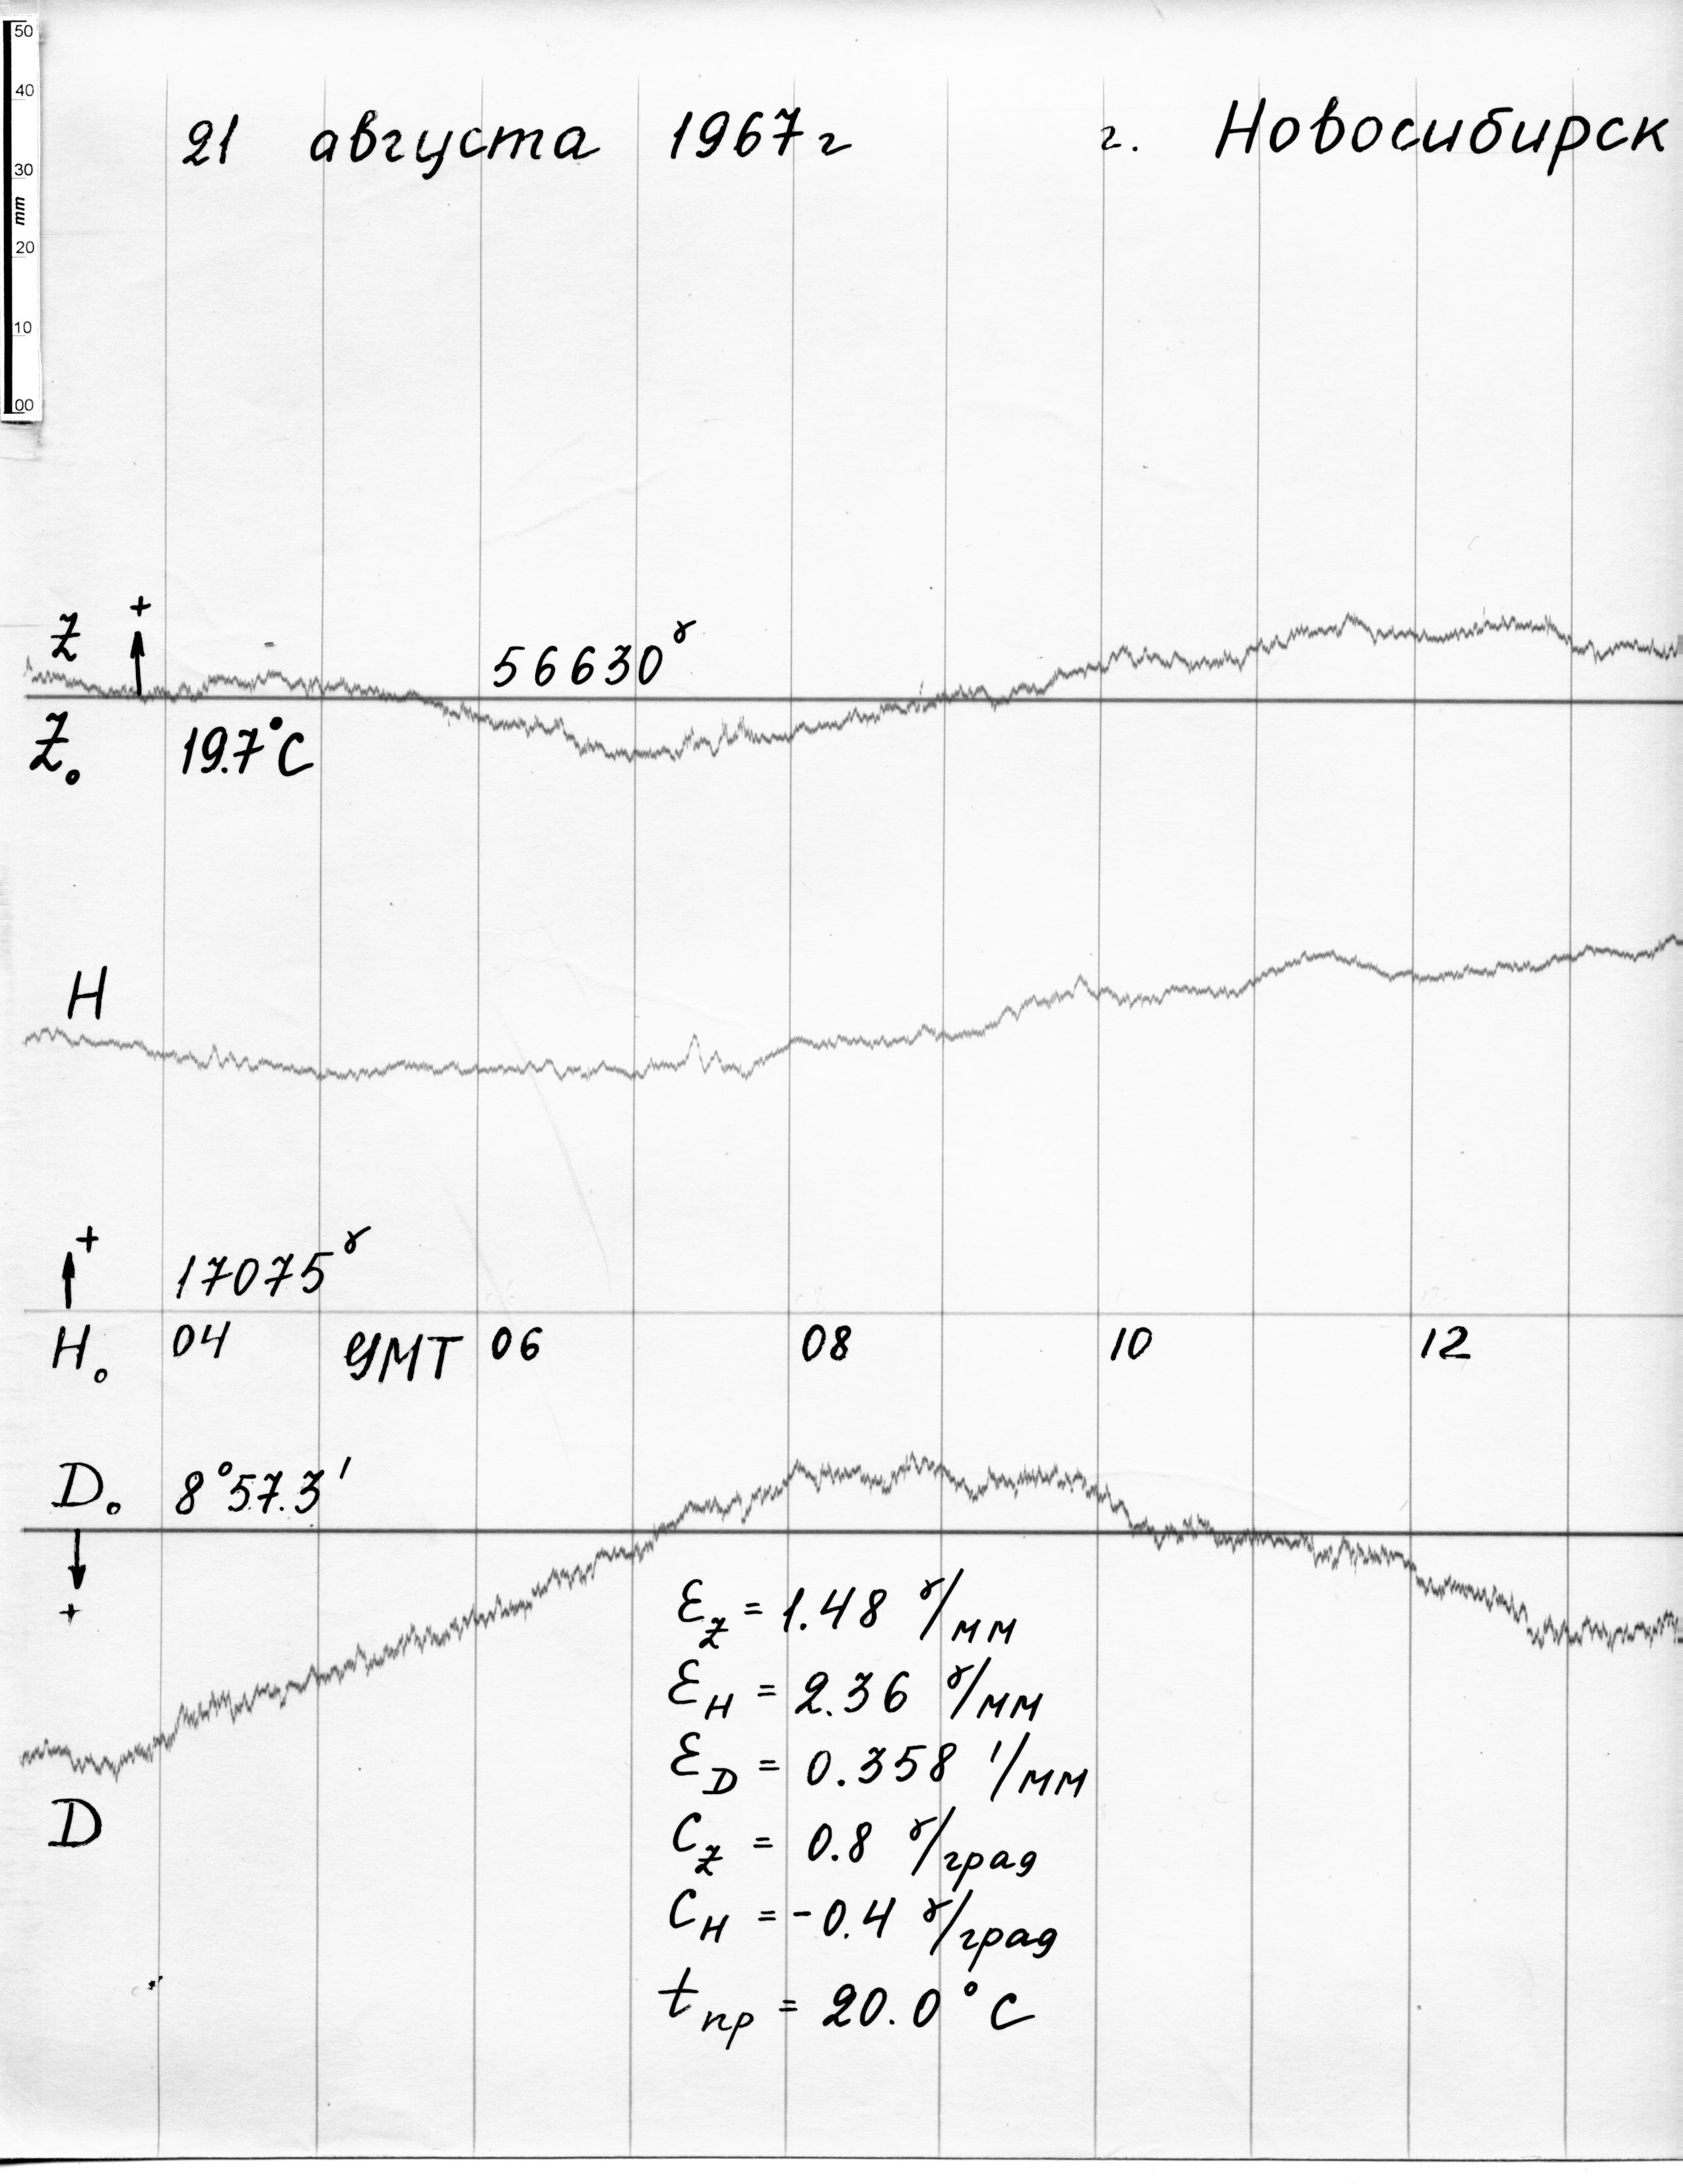 50
40
30
mm
20
10
00
21 августа 1967г г. Новосибирск
Z +
56630γ
Z₀ 19.7°C
H
+
17075γ
H₀ 04 УМТ 06 08 10 12
D₀ 8°57.3'
+
Ɛ_Z = 1.48 γ/мм
Ɛ_H = 2.36 γ/мм
Ɛ_D = 0.358 '/мм
C_Z = 0.8 γ/град
D
C_H = -0.4 γ/град
t_пр = 20.0°C